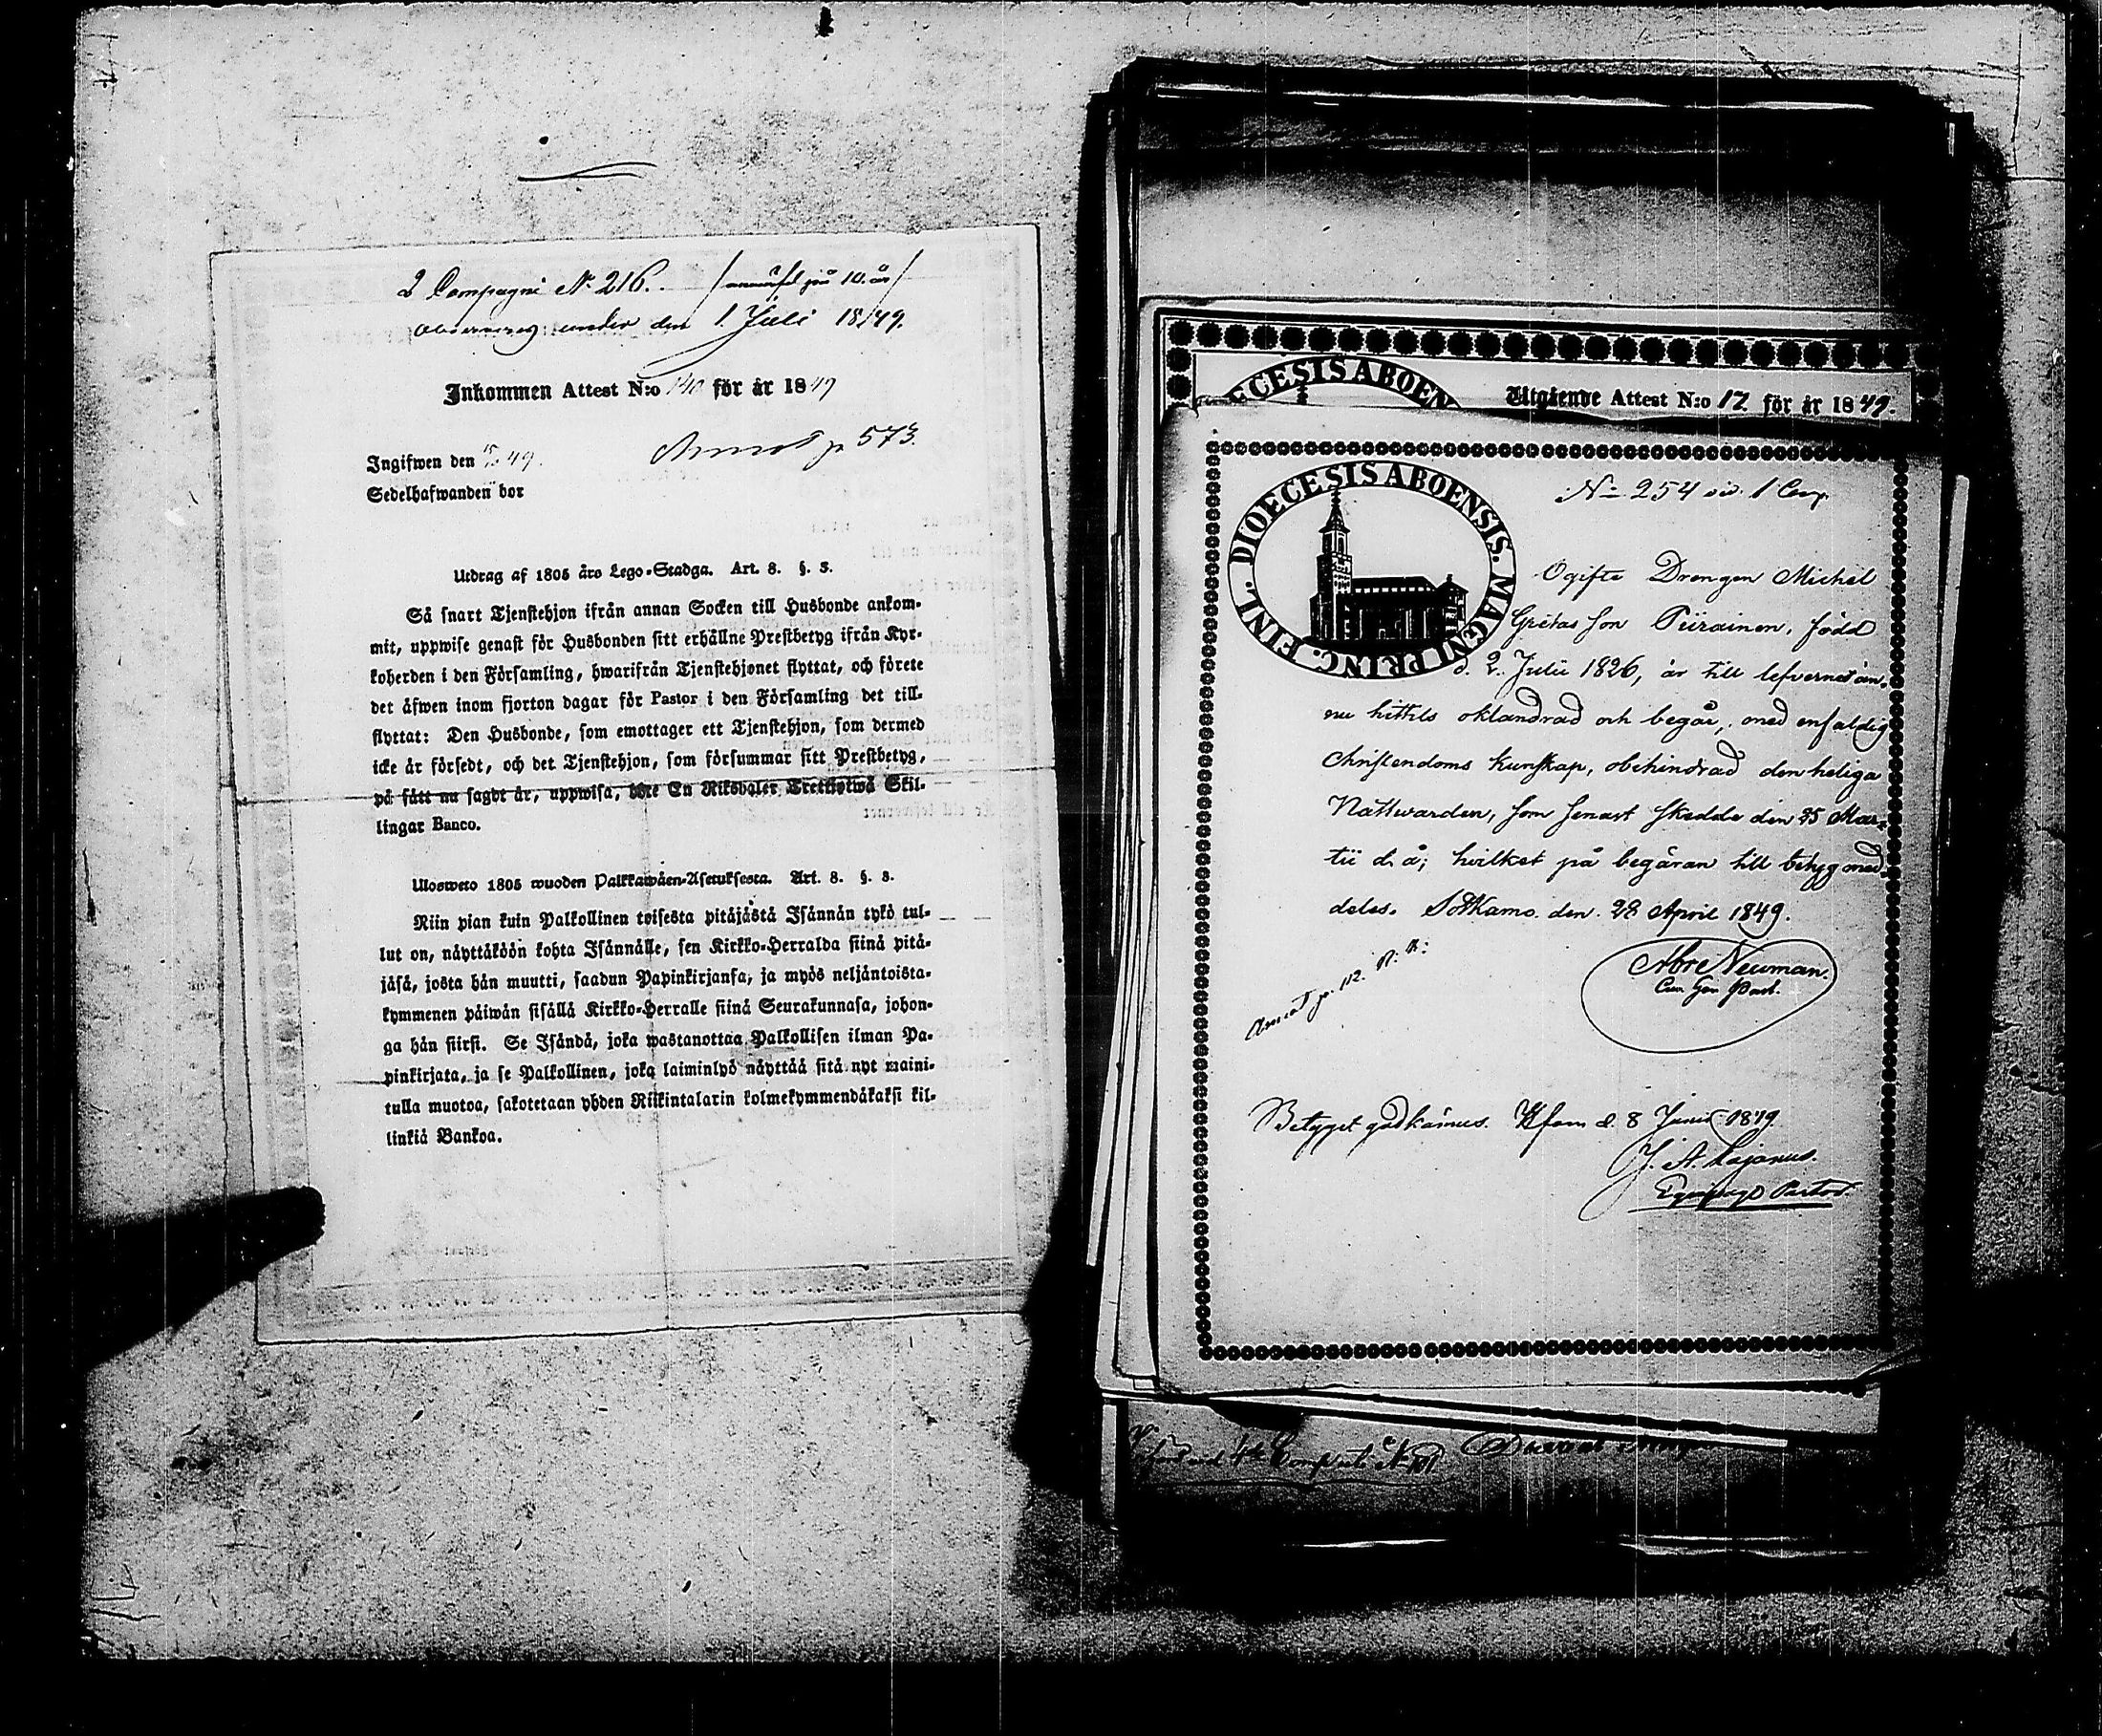 2 Compagni N: 216. /anmäld på 10. år/
under den 1. Juli 1849.
Inkommen Attest N:o 140 för år 1849
Ingifwen den 49. Annot p. 573.
Sedelhafwanden bor
Utdrag af 1805 års Lego-Stadga. Art. 8. §. 3.
Så snart Tjenstehjon ifrån annan Socken till Husbonde ankom-
mit, uppwise genast för Husbonden sitt erhållne Prestbetyg ifrån Kyr-
koherden i den Församling, hwarifrån Tjenstehjonet flyttat, och förete
det äfwen inom fjorton dagar för Pastor i den Församling det till-
flyttat: Den Husbonde, som emottager ett Tjenstehjon, som dermed
icke är försedt, och det Tjenstehjon, som försummar sitt Prestbetyg,
på sätt nu sagdt är, uppwisa, böte En Riksdaler Trettiotwå Skil-
lingar Banco.
Ulosweto 1805 wuoden Palkkawäen-Asetuksesta. Art. 8. §. 3.
Niin pian kuin Palkollinen toisesta pitäjästä Isännän tykö tul-
lut on, näyttäköön kohta Isännälle, sen Kirkko-Herralda siinä pitä-
jäsä, josta hän muutti, saadun Papinkirjansa, ja myös neljäntoista-
kymmenen päiwän sisällä Kirkko-Herralle siinä Seurakunnasa, johon-
ga hän siirsi. Se Isändä, joka wastanottaa Palkollisen ilman Pa-
pinkirjata, ja se Palkollinen, joka laiminlyö näyttää sitä nyt maini-
tulla muotoa, sakotetaan yhden Riikintalarin kolmekymmendäkaksi kil-
linkiä Bankoa.
ECESIS ABOEN
Utgående Attest N:o 12 för år 1849.
DIOECESIS ABOENSIS. MAGNI PRINC. FINL.
No 254 vid 1 Comp.
Ogifte Drengen Michel
Gretas son Piirainen, född
d. 2. Julii 1826, är till lefvernet än-
nu hittils oklandrad och begår, med enfaldig
christendoms kunskap, obehindrad den heliga
Nattwarden, som senast skedde den 25 Mar-
tii d. å; hvilket på begäran till betyg med-
deles. Sotkamo den 28 April 1849.
Abr. Neuman.
Annot p. 112. N: K:
Betyget godkännes. d. 8 Junii 1849.
J. A. Cajanus.
Pastor.